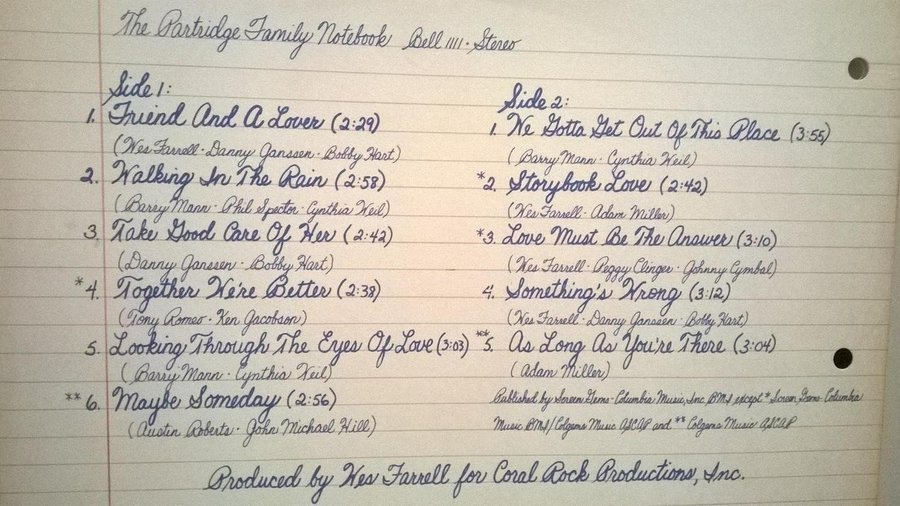 The Partridge Family Notebook Bell 1111 · Stereo
Side 1:
1. Friend And A Lover (2:29)
(Wes Farrell · Danny Janssen · Bobby Hart)
2. Walking In The Rain (2:58)
(Barry Mann · Phil Spector · Cynthia Weil)
3. Take Good Care Of Her (2:42)
(Danny Janssen · Bobby Hart)
*4. Together We're Better (2:38)
(Tony Romeo · Ken Jacobson)
5. Looking Through The Eyes Of Love (3:03)
(Barry Mann · Cynthia Weil)
**6. Maybe Someday (2:56)
(Austin Roberts · John Michael Hill)
Side 2:
1. We Gotta Get Out Of This Place (3:55)
(Barry Mann · Cynthia Weil)
*2. Storybook Love (2:42)
(Wes Farrell · Adam Miller)
*3. Love Must Be The Answer (3:10)
(Wes Farrell · Peggy Clinger · Johnny Cymbal)
4. Something's Wrong (3:12)
(Wes Farrell · Danny Janssen · Bobby Hart)
**5. As Long As You're There (3:04)
(Adam Miller)
Published by Screen Gems-Columbia Music, Inc. BMI except *Screen Gems-Columbia
Music BMI/Colgems Music ASCAP and **Colgems Music ASCAP
Produced by Wes Farrell for Coral Rock Productions, Inc.